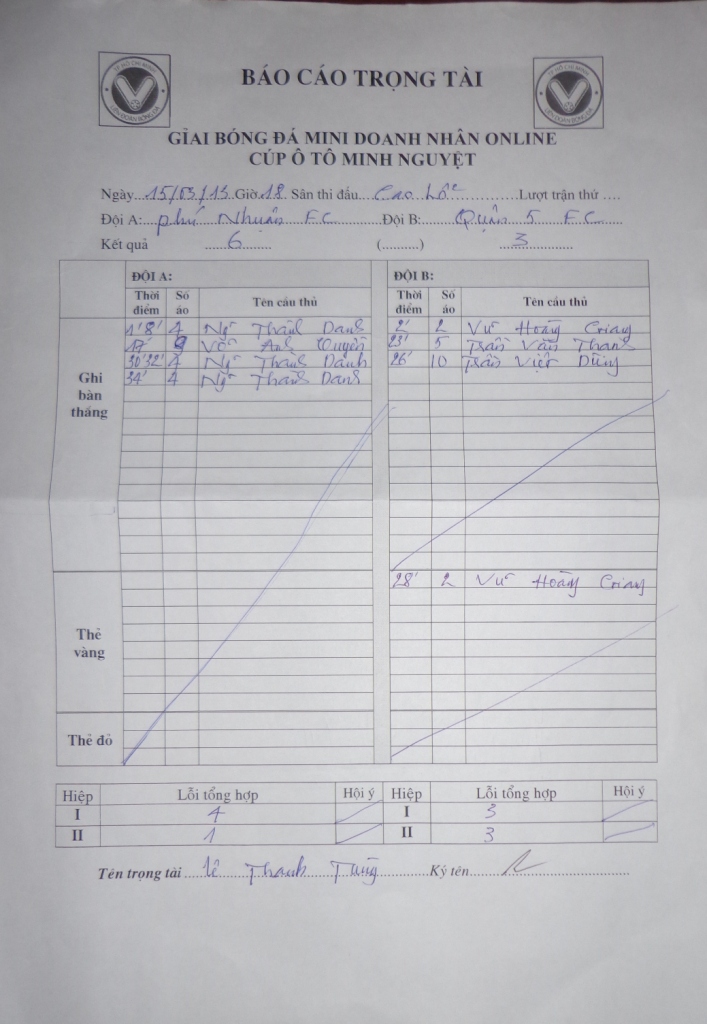 TP HỒ CHÍ MINH
LIÊN ĐOÀN BÓNG ĐÁ
BÁO CÁO TRỌNG TÀI
TP HỒ CHÍ MINH
LIÊN ĐOÀN BÓNG ĐÁ
GIẢI BÓNG ĐÁ MINI DOANH NHÂN ONLINE
CÚP Ô TÔ MINH NGUYỆT
Ngày 15/03/13 Giờ 18 Sân thi đấu Cao Lỗ Lượt trận thứ ....
Đội A: phú Nhuận F.C Đội B: Quận 5 F.C
Kết quả 6 (..........) 3
ĐỘI A: ĐỘI B:
Thời điểm Số áo Tên cầu thủ Thời điểm Số áo Tên cầu thủ
Ghi bàn thắng
1' 8' 4 Ngô Thành Danh 2' 2 Vũ Hoàng
17' 9 Võ Anh 23' 5 Trần Văn Thanh
30' 32' 4 Ngô Thành Danh 26' 10 Trần Việt Dũng
34' 4 Ngô Thành Danh
Thẻ vàng
28' 2 Vũ Hoàng
Thẻ đỏ
Hiệp Lỗi tổng hợp Hội ý Hiệp Lỗi tổng hợp Hội ý
I 4 I 3
II 1 II 3
Tên trọng tài Lê Thanh Tùng Ký tên